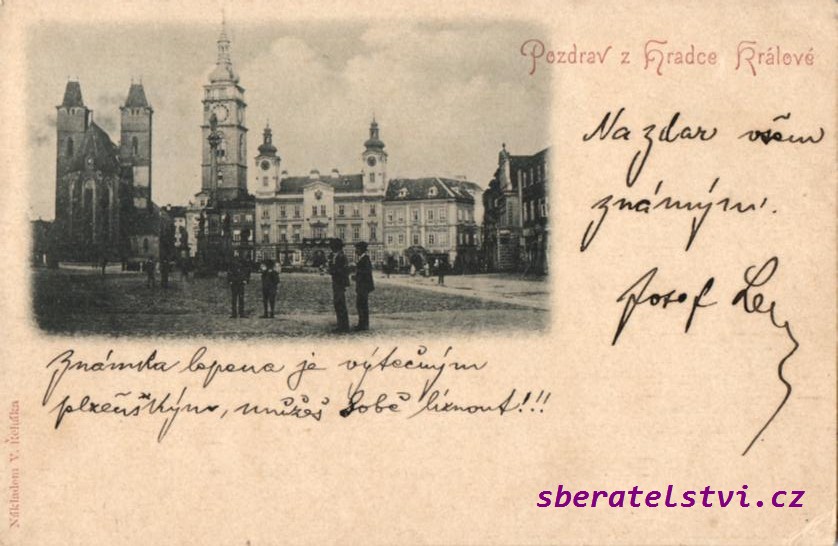 Pozdrav z Hradce Králové
Na zdar všem
známým.
Josef
Známka lepena je výtečným
plzeňským, můžeš sobě líznout!!!
Nákladem V. Řeháka
sberatelstvi.cz